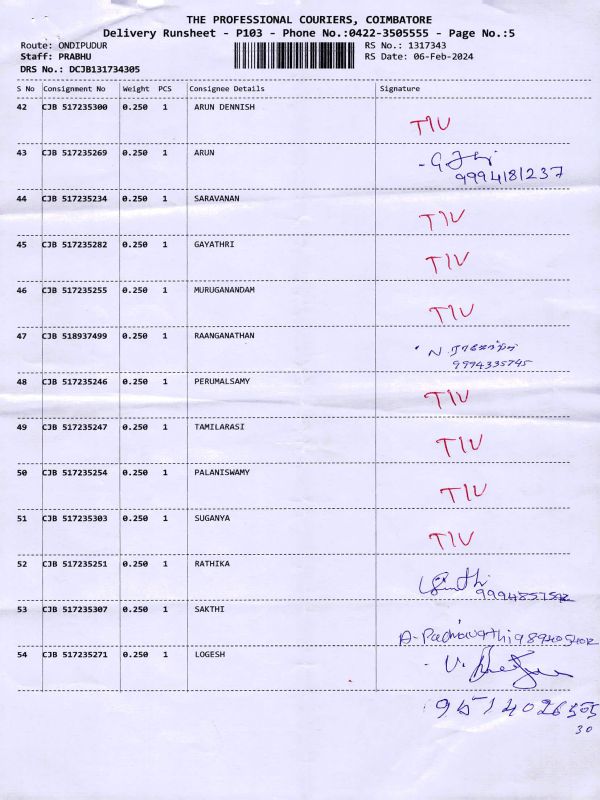 THE PROFESSIONAL COURIERS, COIMBATORE
Delivery Runsheet - P103 - Phone No.:0422-3505555 - Page No.:5
Route: ONDIPUDUR RS No.: 1317343
Staff: PRABHU RS Date: 06-Feb-2024
DRS No.: DCJB131734305
S No Consignment No Weight PCS Consignee Details Signature
42 CJB 517235300 0.250 1 ARUN DENNISH
TIU
43 CJB 517235269 0.250 1 ARUN
9994181237
44 CJB 517235234 0.250 1 SARAVANAN
TIU
45 CJB 517235282 0.250 1 GAYATHRI
TIU
46 CJB 517235255 0.250 1 MURUGANANDAM
TIU
47 CJB 518937499 0.250 1 RAANGANATHAN
N.
9994335745
48 CJB 517235246 0.250 1 PERUMALSAMY
TIU
49 CJB 517235247 0.250 1 TAMILARASI
TIU
50 CJB 517235254 0.250 1 PALANISWAMY
TIU
51 CJB 517235303 0.250 1 SUGANYA
TIU
52 CJB 517235251 0.250 1 RATHIKA
53 CJB 517235307 0.250 1 SAKTHI
54 CJB 517235271 0.250 1 LOGESH
V.
30